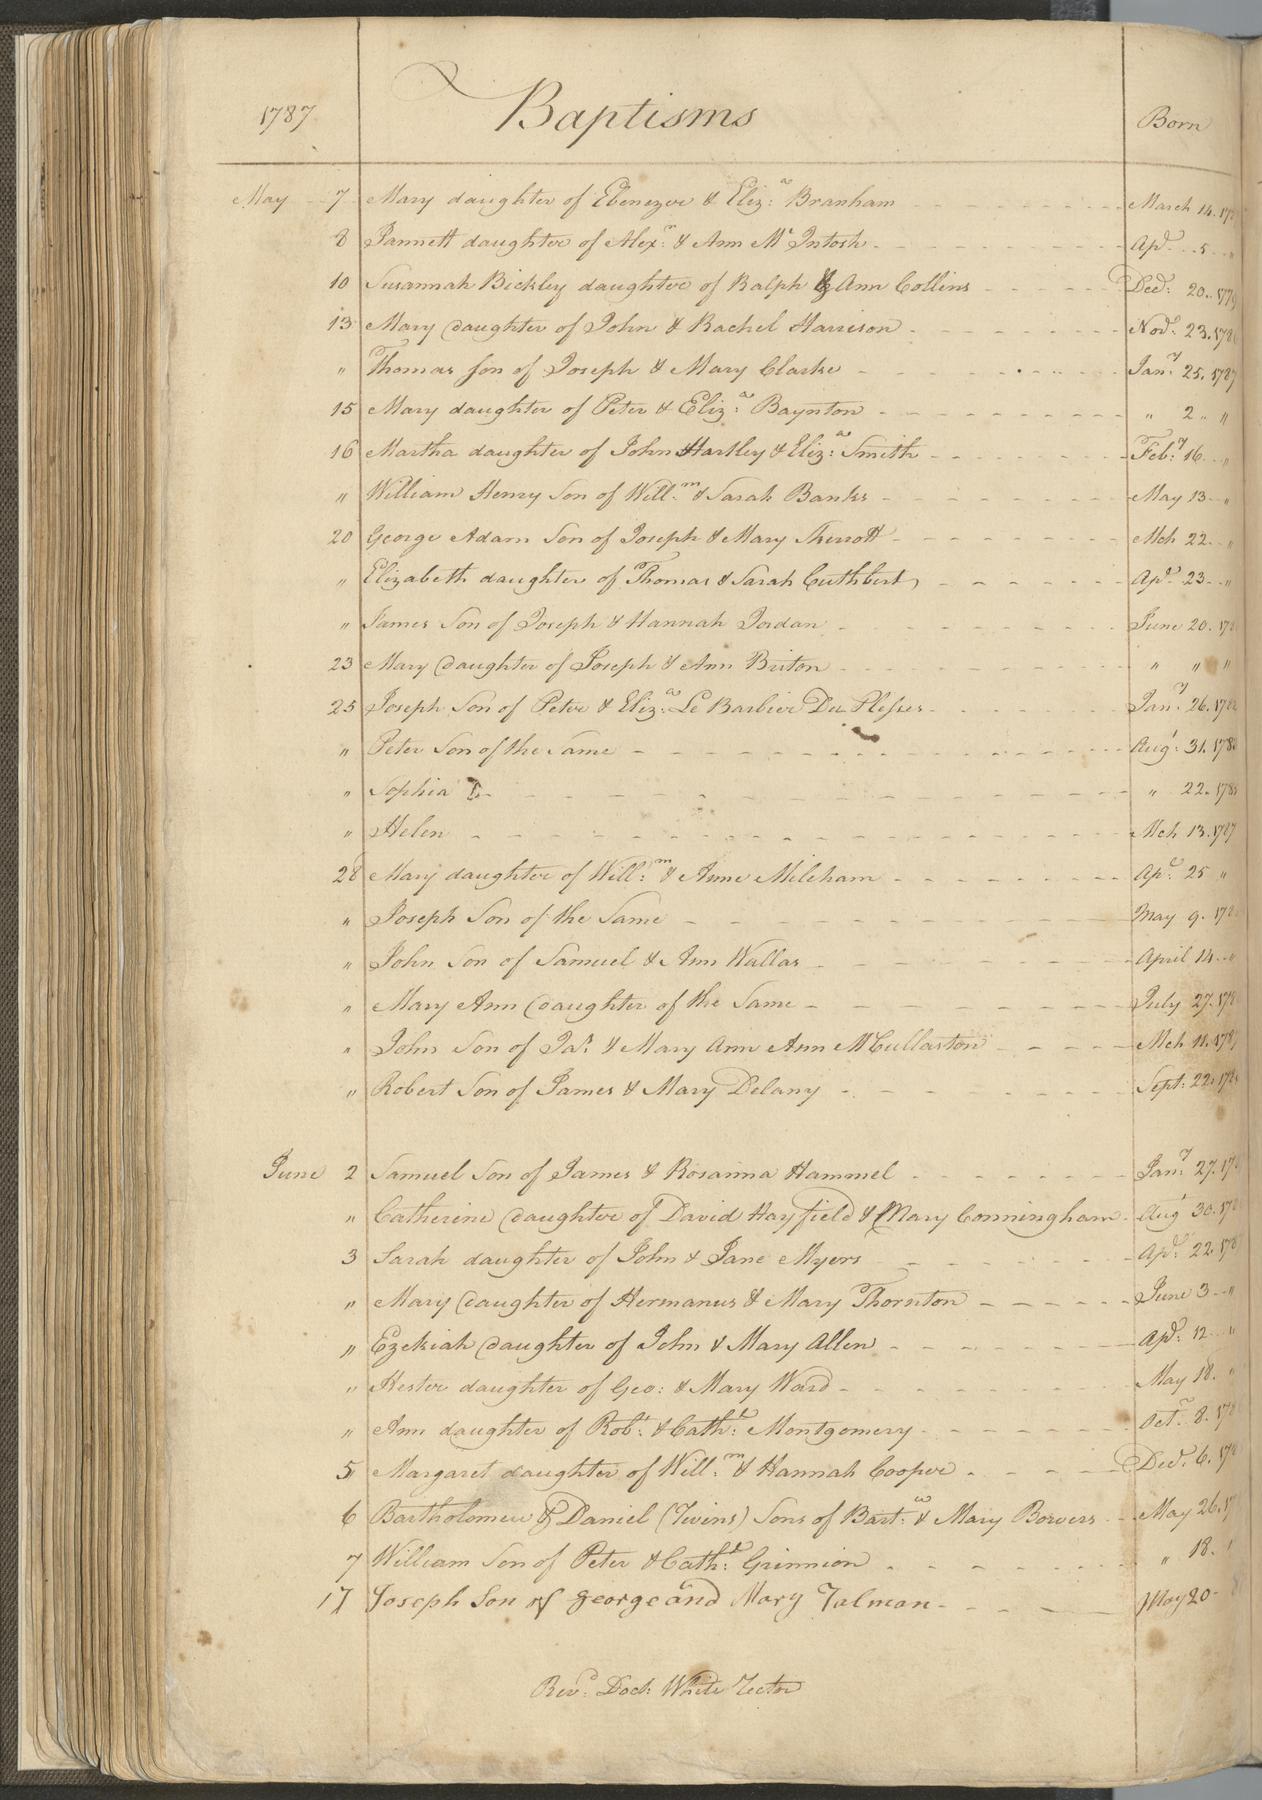 1787 Baptisms Born
May 7 Mary daughter of Ebenezer & Eliz:a Branham March 14.
8 Jannett daughter of Alexr: & Ann Mc Intosh Apl 5 "
10 Susannah Bickley daughter of Ralph & Ann Collins Decr: 20. 1779
13 Mary daughter of John & Rachel Harrison Novr: 23. 1786
" Thomas Son of Joseph & Mary Clarke Jany: 25. 1787
15 Mary daughter of Peter & Eliz:a Baynton " 2 " "
16 Martha daughter of John Hartley & Eliz:a Smith Feby: 16 "
" William Henry Son of Will:m & Sarah Banks May 13 "
20 George Adam Son of Joseph & Mary Mch 22 "
" Elizabeth daughter of Thomas & Sarah Cuthbert Apl 23 "
" James Son of Joseph & Hannah Jordan June 20.
23 Mary daughter of Joseph & Ann Briton " " "
25 Joseph Son of Peter & Eliz:a Le Barbier Du Plesses Jany: 26.
" Peter Son of the Same Augt: 31.
" Sophia " 22.
" Helen Mch 13. 1787
28 Mary daughter of Will:m & Anne Mileham Apl 25 "
" Joseph Son of the Same May 9.
" John Son of Samuel & Ann Wallas April 14 "
" Mary Ann daughter of the Same July 27.
" John Son of Jas: & Mary Ann Ann McCullaston Mch 11.
" Robert Son of James & Mary Delany Sept: 22.
June 2 Samuel Son of James & Rosanna Hammel Jany: 27.
" Catherine daughter of David Hayfield & Mary Conningham Augt 30.
3 Sarah daughter of John & Jane Myers Apl: 22.
" Mary daughter of Hermanus & Mary Thornton June 3 "
" Ezekiah daughter of John & Mary Allen Apl: 12 "
" Hester daughter of Geo: & Mary Ward May 18. "
" Ann daughter of Robt: & Cath:e Montgomery Octr: 8.
5 Margaret daughter of Will:m & Hannah Cooper Decr: 6.
6 Bartholomew & Daniel (Twins) Sons of Bart:w & Mary Bowers May 26.
7 William Son of Peter & Cath:e Grinnion " 18.
17 Joseph Son of George and Mary Talman May 20
Revd: Doct: White Rector